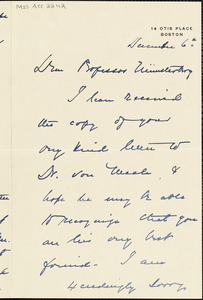 Mss Acc 2242
14 OTIS PLACE
BOSTON
December 6th
Dear Professor Münsterberg
I have received
the copy of your
very kind letter to
Dr. von Mach, &
hope he may be able
to recognize that you
are his very best
friend. I am
exceedingly sorry